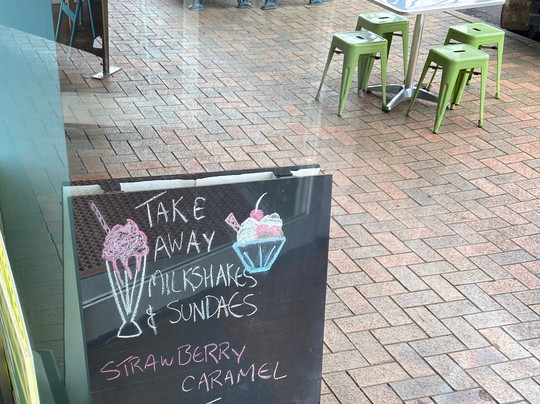 TAKE
AWAY
MILKSHAKES
& SUNDAES
STRAWBERRY
CARAMEL